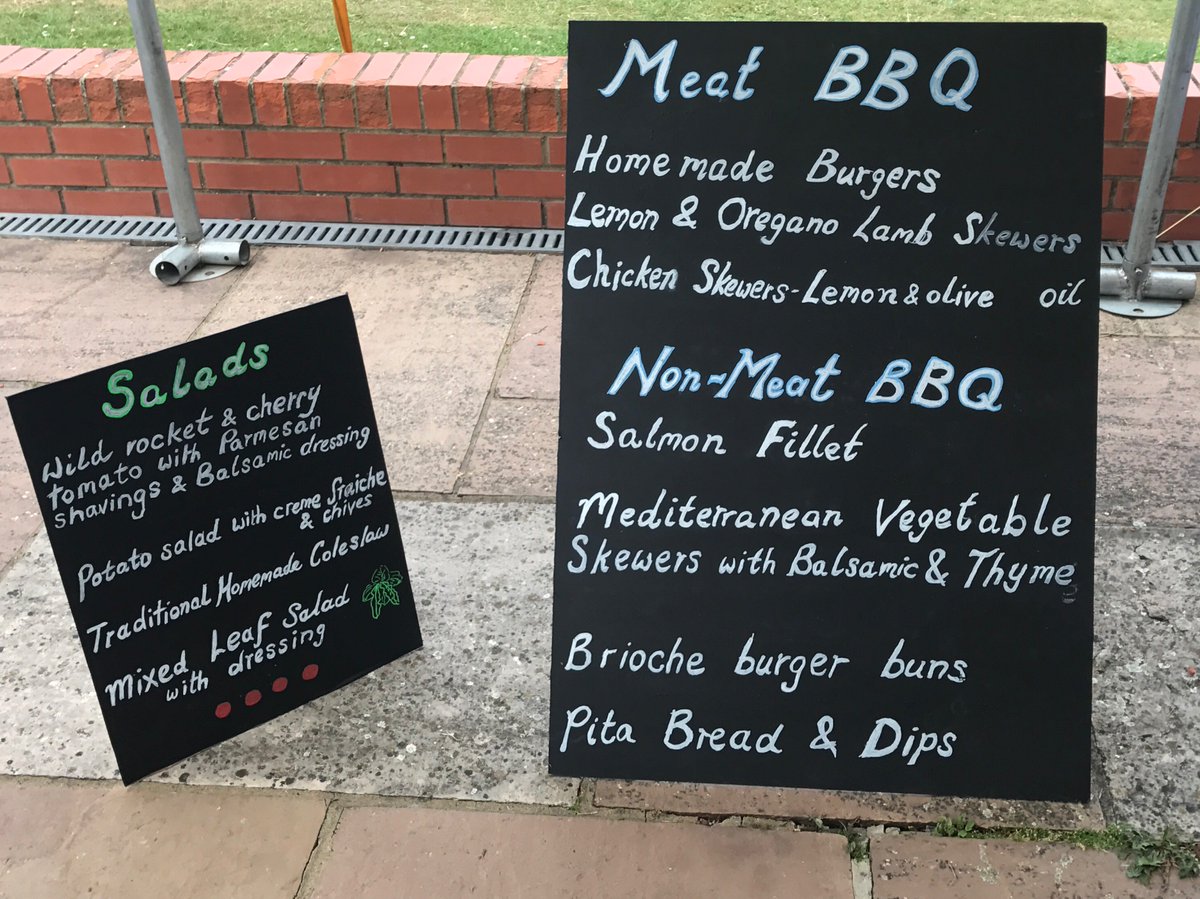 Salads
Wild rocket & cherry
tomato with Parmesan
shavings & Balsamic dressing
Potato salad with creme fraiche
& chives
Traditional Homemade Coleslaw
Mixed Leaf Salad
with dressing
Meat BBQ
Homemade Burgers
Lemon & Oregano Lamb Skewers
Chicken Skewers - Lemon & olive oil
Non-Meat BBQ
Salmon Fillet
Mediterranean Vegetable
Skewers with Balsamic & Thyme
Brioche burger buns
Pita Bread & Dips